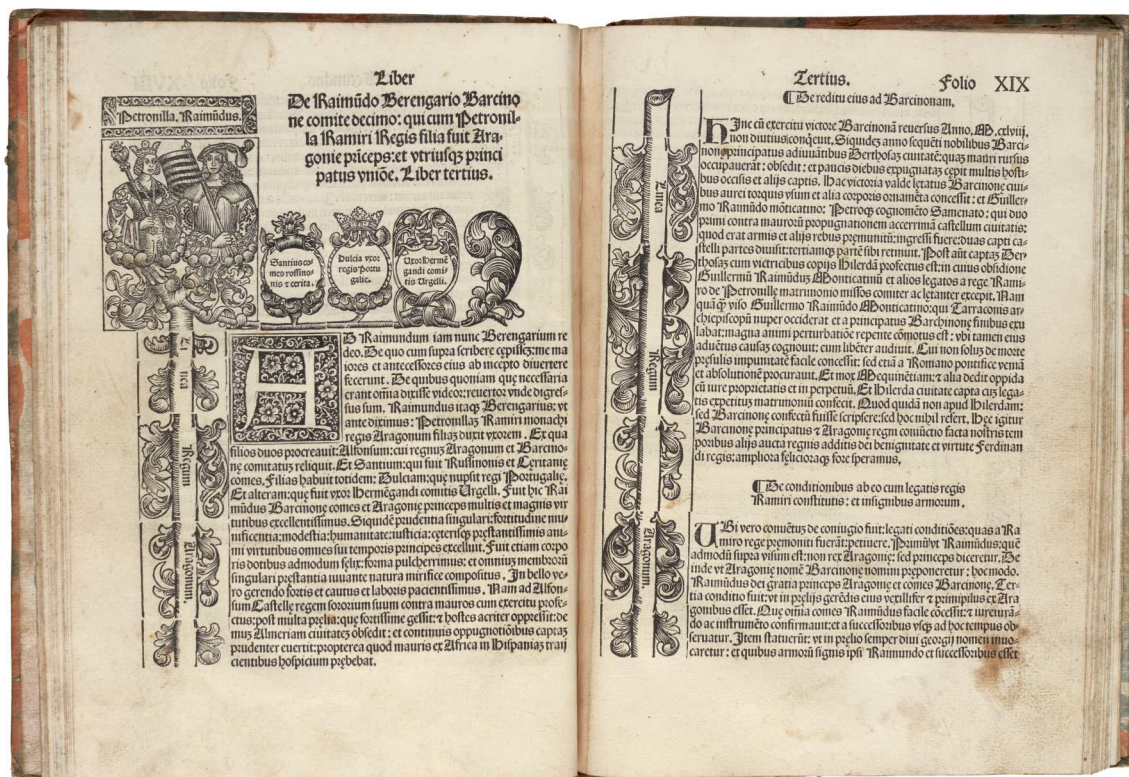 Liber
Petronilla. Raimũdus.
De Raimũdo Berengario Barcino
ne comite decimo: qui cum Petronil-
la Ramiri Regis filia fuit Ara-
gonie prĩceps: et vtriusqꝫ princi
patus vniõe. Liber tertius.
Santius co-
mes rossino-
nis ⁊ cerita.
Dulcia vxor
regis Portu
galie.
Uxor Hermẽ
gandi comi-
tis Urgelli.
Linea
Regum
Aragonum.
AD Raimundum iam nunc Berengarium re
deo. De quo cum supra scribere cępissem: me ma
iores et antecessores eius ab incepto diuertere
fecerunt. De quibus quoniam quę necessaria
erant om̃ia dixisse videor: reuertor vnde digres-
sus sum. Raimundus itaqꝫ Berengarius: vt
ante diximus: Petronillaꝫ Ramiri monachi
regis Aragonum filiaꝫ duxit vxorem. Ex qua
filios duos procreauit: Alfonsum: cui regnuꝫ Aragonum et Barcino-
nę comitatuꝫ reliquit. Et Santium: qui fuit Russinonis et Cęritanię
comes. Filias habuit totidem: Dulciam: quę nupsit regi Portugalię.
Et alteram: quę fuit vxor Hermẽgandi comitis Urgelli. Fuit hic Rai
mũdus Barcinonę comes et Aragonię princeps multis et magnis vir
tutibus excellentissimus. Siquidẽ prudentia singulari: fortitudine mu-
nificentia: modestia: humanitate: iusticia: cęterisqꝫ pręstantissimis ani-
mi virtutibus omnes sui temporis principes excelluit. Fuit etiam corpo
ris dotibus admodum fęlix: forma pulcherrimus: et omniuꝫ membrorũ
singulari pręstantia iuuante natura mirifice compositus. In bello ve-
ro gerendo fortis et cautus et laboris pacientissimus. Nam ad Alfon-
sum Castellę regem sororium suum contra mauros cum exercitu profe-
ctus: post multa pręlia: quę fortissime gessit: ⁊ hostes acriter oppressit: de-
muꝫ Almeriam ciuitateꝫ obsedit: et continuis oppugnatiõibus captaꝫ
prudenter euertit: propterea quod mauris ex Africa in Hispaniaꝫ traij
cientibus hospicium prębebat.
Tertius. Folio XIX
¶ De reditu eius ad Barcinonam.
HInc cũ exercitu victore Barcinonã reuersus Anno. M.cxlviij.
non diutius conq̃euit. Siquideꝫ anno sequẽti nobilibus Barci-
nonę principatus adiuuãtibus Derthosaꝫ ciuitatẽ: quaꝫ mauri rursus
occupauerãt: obsedit: et paucis diebus expugnataꝫ cępit multis hosti-
bus occisis et alijs captis. Hac victoria valde lętatus Barcinonę ciui-
bus aurei torquis vsum et alia corporis ornamẽta concessit: et Guiller-
mo Raimũdo mõticatino: Petroqꝫ cognomẽto Samenato: qui duo
primi contra maurorũ propugnationem accerrimã castellum ciuitatis:
quod erat armis et alijs rebus pręmunitũ: ingressi fuere: duas capti ca-
stelli partes diuisit: tertiamqꝫ partẽ sibi retinuit. Post aũt captaꝫ Der-
thosaꝫ cum victricibus copijs Hilerdã profectus est: in cuius obsidione
Guillermũ Raimũduꝫ Monticatinũ et alios legatos a rege Rami-
ro de Petronillę matrimonio missos comiter ac lętanter excepit. Nam
quãq̃ȝ viso Guillermo Raimũdo Monticatino: qui Tarraconę ar-
chiepiscopũ nuper occiderat et a principatus Barchinonę finibus exu
labat: magna animi perturbatiõe repente cõmotus est: vbi tamen eius
aduẽtus causaꝫ cognouit: eum libẽter audiuit. Cui non soluꝫ de morte
pręsulis impunitatẽ facile concessit: sed etiã a Romano pontifice veniã
et absolutionẽ procurauit. Et mox Mequinẽtiam: ⁊ alia dedit oppida
cũ iure proprietatis et in perpetuũ. Et Hilerda ciuitate capta cuꝫ lega-
tis expetituꝫ matrimoniũ confecit. Quod quidã non apud Hilerdam:
sed Barcinonę confectũ fuisse scripsere: sed hoc nihil refert. Hęc igitur
Barcinonę principatus ⁊ Aragonię regni coniũctio facta nostris tem
poribus alijs aucta regnis additis dei benignitate et virtute Ferdinan
di regis: ampliora fęlicioraqꝫ fore speramus.
¶ De conditionibus ab eo cum legatis regis
Ramiri constitutis: et insignibus armorum.
UBi vero conuẽtuꝫ de coniugio fuit: legati conditiões: quas a Ra
miro rege pręmoniti fuerãt: petiuere. Primũ vt Raimũdus: quẽ
admodũ supra visum est: non rex Aragonię: sed princeps diceretur. De
inde vt Aragonię nomẽ Barcinonę nomini pręponeretur: hoc modo.
Raimũdus dei gratia princeps Aragonię et cõmes Barcinonę. Ter-
tia conditio fuit: vt in pręlijs gerẽdis eius vexillifer ⁊ primipilus ex Ara
gonibus esset. Quę om̃ia comes Raimũdus facile cõcessit: ⁊ iureiurã-
do ac instrumẽto confirmauit: et a successoribus vsqꝫ ad hoc tempus ob-
seruatur. Item statuerũt: vt in pręlio semper diui georgij nomen inuo-
caretur: et quibus armorũ signis ipsi Raimundo et successoribus esset
Linea
Regum
Aragonum.